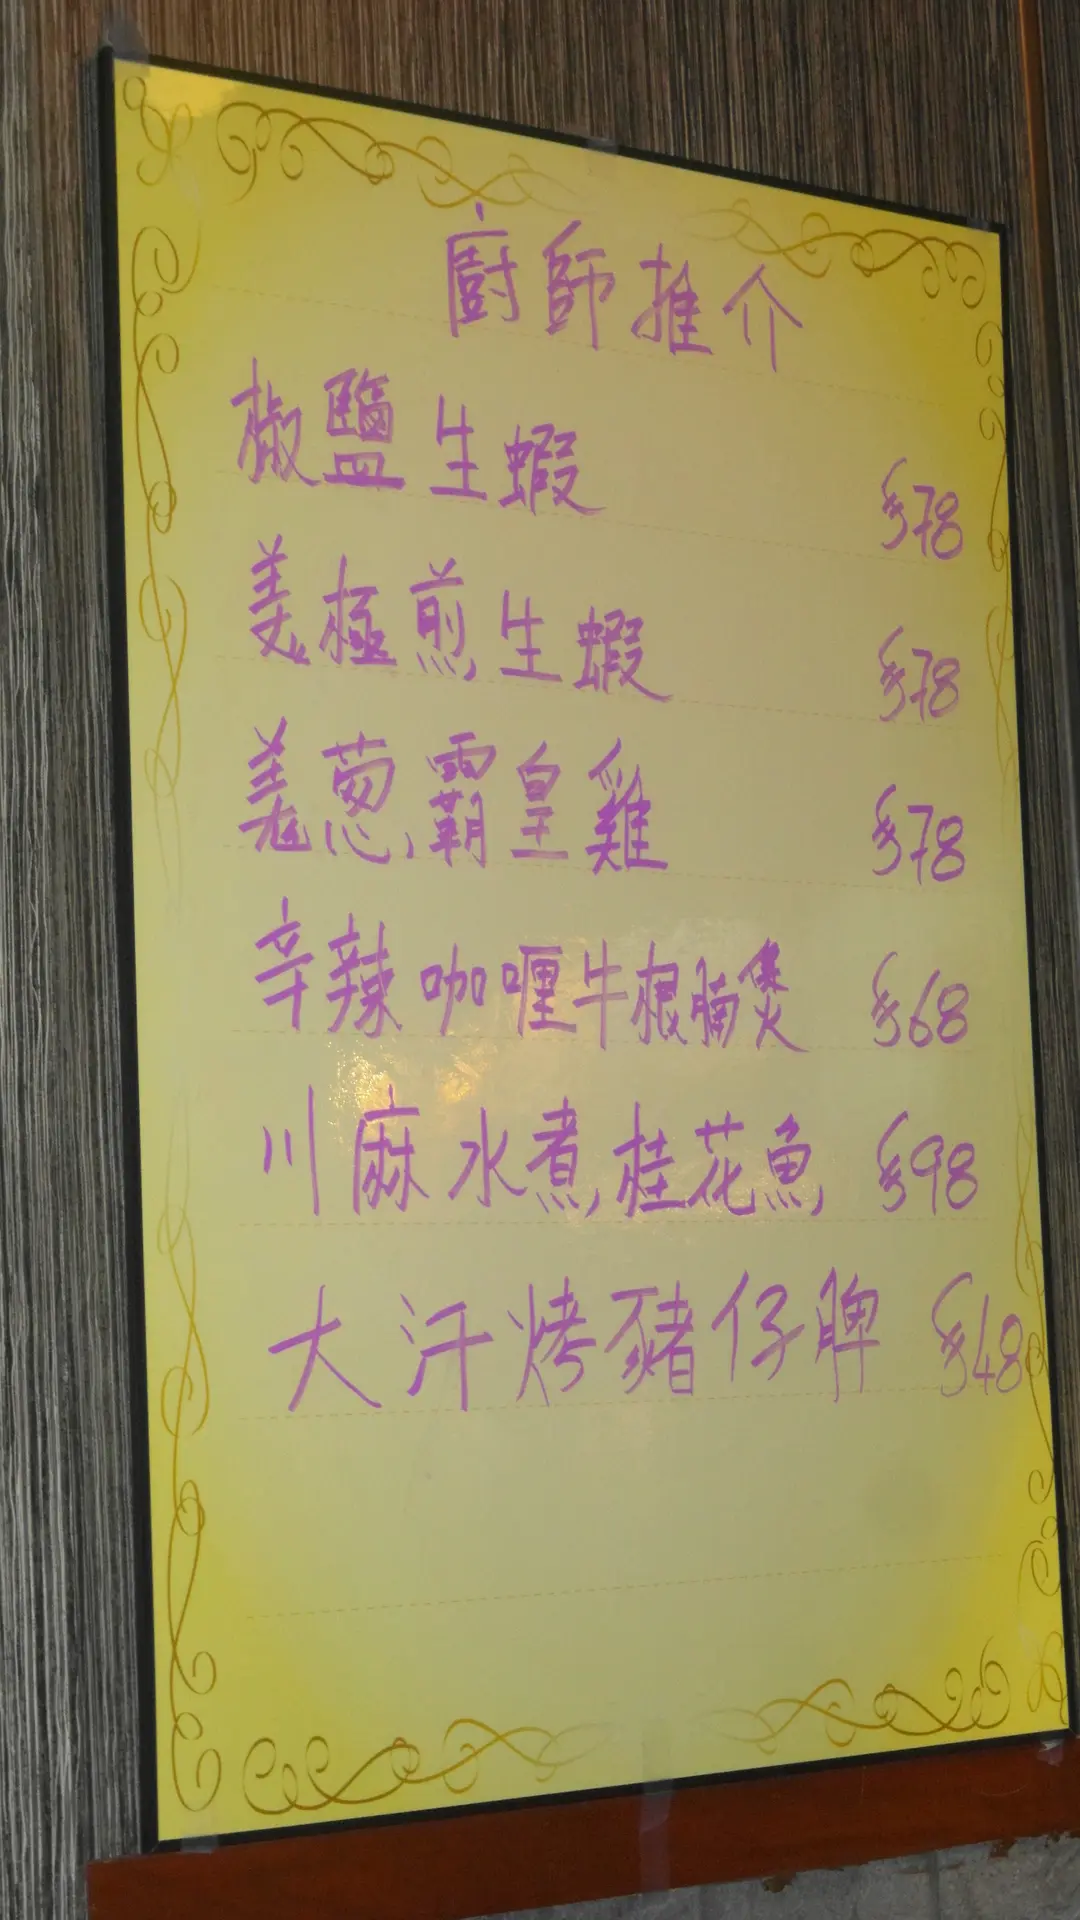 廚師推介
椒鹽生蝦 $78
美極煎生蝦 $78
羌葱霸皇雞 $78
辛辣咖喱牛根腩煲 $68
川麻水煮桂花魚 $98
大汗烤豬仔脾 $48